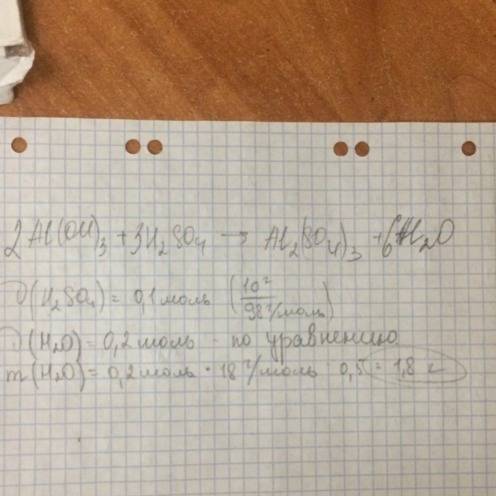 2Al(OH)₃ + 3H₂SO₄ → Al₂(SO₄)₃ + 6H₂O
ν(H₂SO₄) = 0,1 моль (10 г / 98 г/моль)
ν(H₂O) = 0,2 моль - по уравнению
m(H₂O) = 0,2 моль · 18 г/моль · 0,5 = 1,8 г